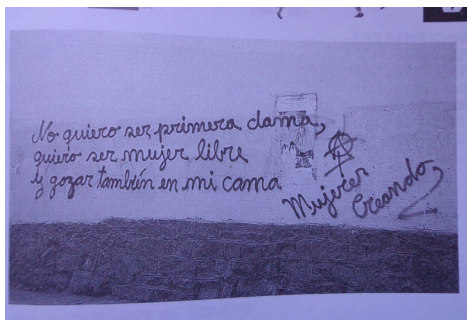 No quiero ser primera dama,
quiero ser mujer libre
y gozar también en mi cama
Mujeres
Creando